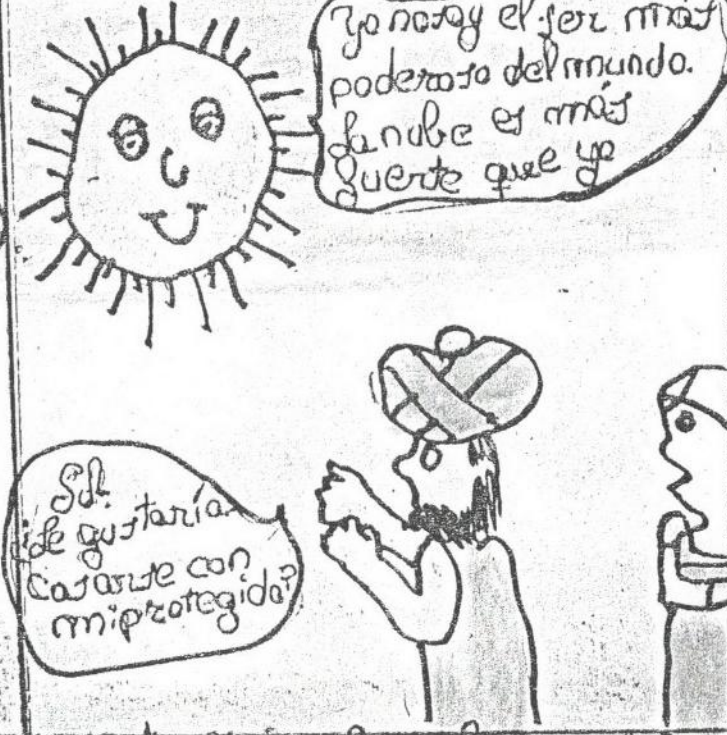 Yo no soy el ser más
poderoso del mundo.
La nube es más
fuerte que yo
Sol.
¿Le gustaría
casarse con
mi protegida?